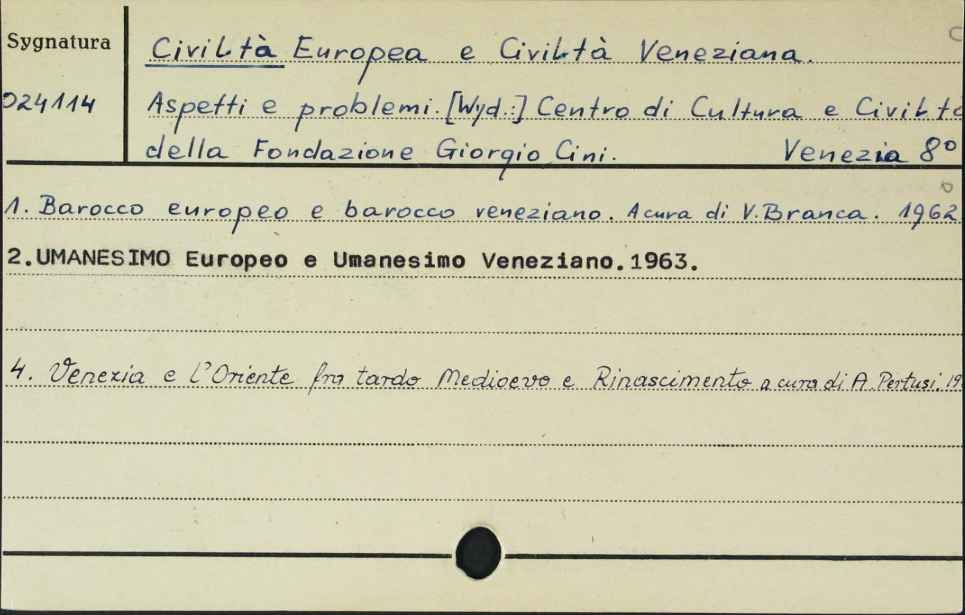 Sygnatura
Civiltà Europea e Civiltà Veneziana.
024114
Aspetti e problemi. [Wyd.:] Centro di Cultura e Civilt
della Fondazione Giorgio Cini. Venezia 8°
1. Barocco europeo e barocco veneziano. A cura di V. Branca. 1962
2.UMANESIMO Europeo e Umanesimo Veneziano.1963.
4. Venezia e l'Oriente fra tardo Medioevo e Rinascimento a cura di A. Pertusi. 19